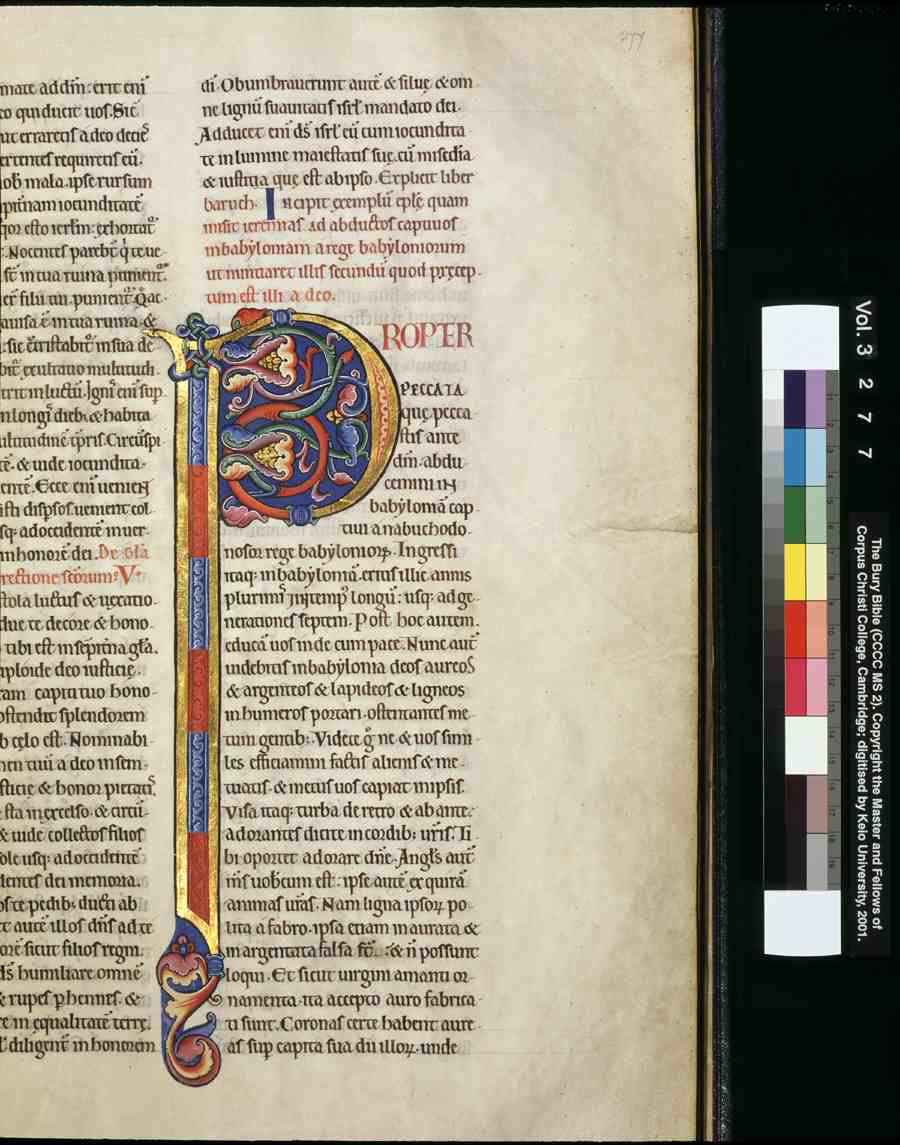 mate ad dm̄: erit eni
co qui ducit uos. Sic
ut erraretis a deo decieˢ
ertentes requiretis eū.
ob mala. ipse rursum
pit̄nam iocunditatē
qor esto ierlm̄: exhortat᷑
. Nocentes
sē in tua ruina punient᷑.
filii tui punient᷑. Qae
auisa ē in tua ruina. &
sic c̄tristabit᷑ in sua de
exultatio multitudi
erit in luctū. Ignis eni sup
in longis dieb; & habita
ultitudinē ip̄ris. Circūspi
tē. & uide iocundita
entē. Ecce eni ueniēt
disp̄sos. uenient col
sq; ad occidentē in uer
in honorē dei. De gl̄a
rectione sc̄orum: V
stola luctus & uexatio
due te decore & hono
tibi est in sēpit̄na gl̄a.
iploide deo iusticię.
ram capiti tuo hono
ostendit splendorem
b cęlo est. Nominabi
en tuū a deo in sem
sticie & honor pietatiˢ
sta in excelso. & circū
& uide collectos filios
ole usq; ad occidentē
dentes dei memoria.
oste pedib; ducti ab
t autē illos dn̄s ad te
orē sicut filios regni.
d̄s humiliare omnē
& rupes p̄hennes. &
re in equalitatē terrę.
diligent̄ in honorem
di. Obumbrauerunt autē & siluę & om
ne lignū suauitatis isrl̄ mandato dei.
Adducet eni d̄s isrl̄ eū cum iocundita
te in lumine maiestatis suę. cū mis̄cdia
& iustitia quę est ab ipso. Explicit liber
baruch. Incipit exemplū epl̄ę quam
misit ieremias ad abductos captiuos
in babyloniam a rege babyloniorum
ut nuntiaret illis secundū quod pręcep
tum est illi a deo.
PROPTER
PECCATA
quę pecca
stis ante
dm̄. abdu
cemini IN
babylonia cap
tiui a nabuchodo
nosor rege babyloniorꝝ. Ingressi
itaq; in babylonia. eritis illic annis
plurimis & temp᷒ longū: usq; ad ge
nerationes septem. Post hoc autem.
educā uos inde cum pace. Nunc aut̄
uidebitis in babylonia deos aureos
& argenteos & lapideos & ligneos
in humeros portari. ostentantes me
tum gentib;. Videte g̊ ne & uos simi
les efficiamini factis alienis & me
tuatis. & metus uos capiat in ipsis.
Visa itaq; turba de retro & ab ante.
adorantes dicite in cordib; ur̄is. Ti
bi oportet adorare dn̄e. Angl̄s aut̄
m̄s uobcum est: ipse autē exquirā
animas ur̄as. Nam ligna ipsorꝝ po
lita a fabro. ipsa etiam inaurata &
inargentata falsa st̄. & n̄ possunt
loqui. Et sicut uirgini amanti or
namenta. ita accepto auro fabrica
ti sunt. Coronas certe habent aure
as sup capita sua dii illorꝝ. unde
Vol. 3 277
The Bury Bible (CCCC MS 2). Copyright the Master and Fellows of
Corpus Christi College, Cambridge; digitised by Keio University, 2001.